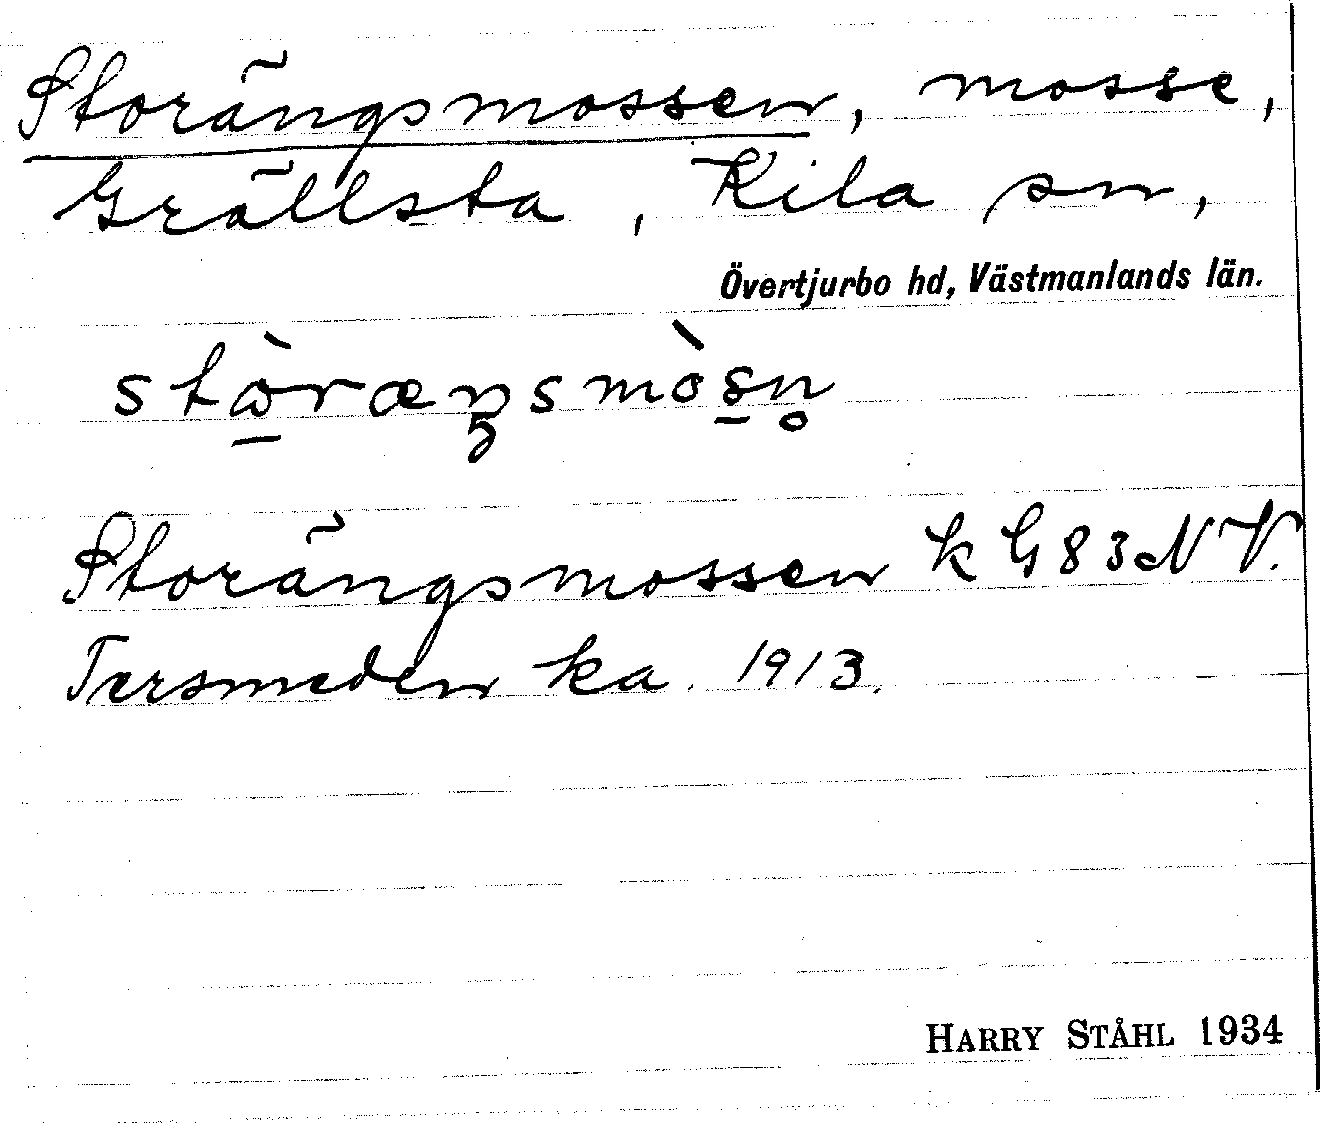 Storängsmossen, mosse,
Grällsta, Kila sn,
Övertjurbo hd, Västmanlands län.
stὼ̠ræŋsmòs̠n̥
Storängsmossen k G83NV.
Tersmeden ka. 1913.
HARRY STÅHL 1934